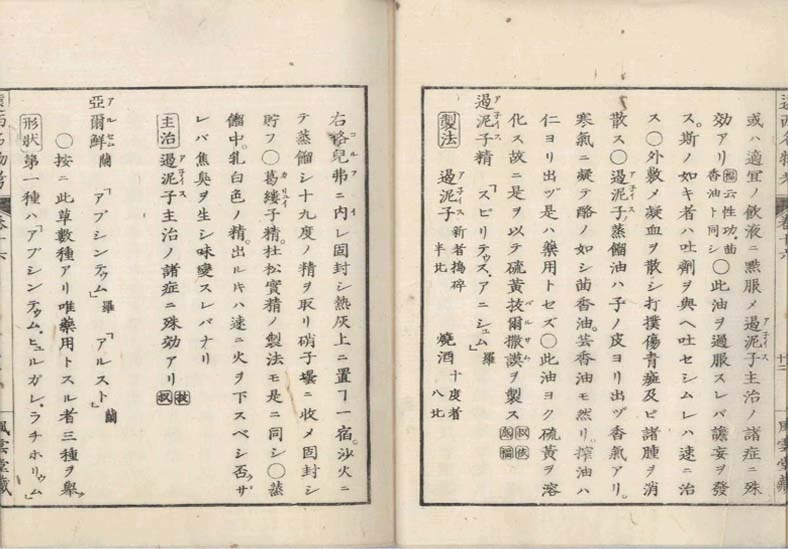 或ハ適宜ノ飲液ニ㸃服メ過泥子主治ノ諸症ニ殊
効アリ 云性功茴香油ト同シ ○此油ヲ過服スレバ譫妄ヲ發
ス。斯ノ如キ者ハ吐劑ヲ與ヘ吐セシムレハ速ニ治
ス○外敷メ凝血ヲ散シ打撲傷青斑及ビ諸腫ヲ消
散ス○過泥子ノ蒸餾油ハ子ノ皮ヨリ出ヅ香氣アリ。
寒氣ニ凝テ酪ノ如シ茴香油。芸香油モ然リ。搾油ハ
仁ヨリ出ヅ是ハ藥用トセズ○此油ヨク硫黄ヲ溶
化ス故ニ是ヲ以テ硫黄抜爾撒謨ヲ製ス
過泥子精 「スピリテゥス、アニシュム」羅
製法 過泥子 新者搗碎 半比 燒酒 十度者 八比
右格兒弗ニ内レ固封シ熱灰上ニ置ヿ一宿。沙火ニ
テ蒸餾シ十九度ノ精ヲ取リ硝子壜ニ收メ固封シ
貯フ○葛縷子精。杜松實精ノ製法モ是ニ同シ○蒸
餾中。乳白色ノ精。出ル片ハ速ニ火ヲ下スベシ否ザ
レバ焦臭ヲ生シ味變スレバナリ
主治 過泥子主治ノ諸症ニ殊効アリ
亞爾鮮 蘭 「アブシンテゥム」羅 「アルスト」蘭
○按ニ此草數種アリ唯藥用トスル者三種ヲ舉グ
形狀 第一種ハ「アブシンテゥム、ヒュルガレ、ラチホリゥム」
風雲堂藏
風雲堂藏